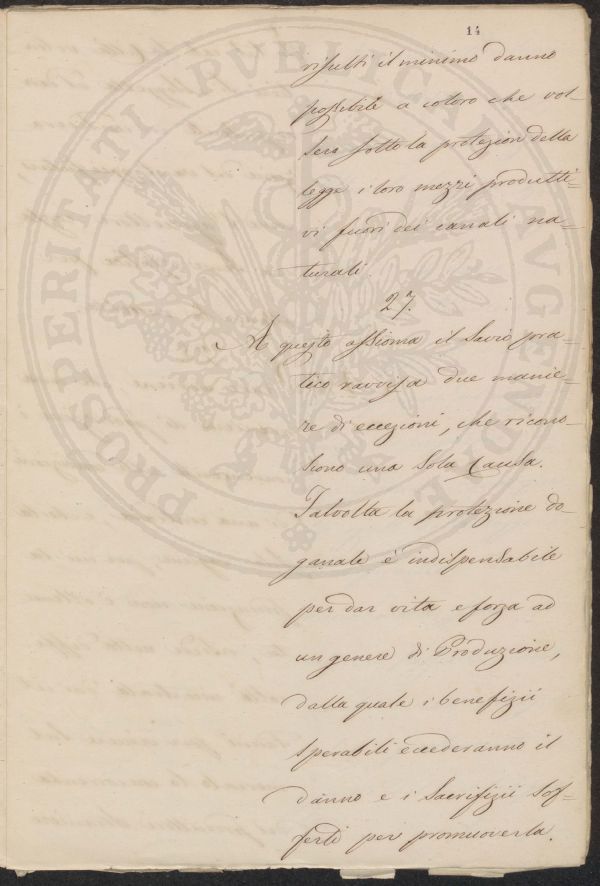 14
risulti il minimo danno
possibile a coloro che vol-
sero sotto la protezion della
legge i loro mezzi produtti-
vi fuori dei canali na-
turali.
27.
A questo assioma il Savio pra-
tico ravvisa due manie-
re di eccezioni, che ricono-
scono una sola Causa.
Talvolta la protezione do-
ganale è indispensabile
per dar vita e forza ad
un genere di Produzione,
dalla quale i benefizii
sperabili eccederanno il
danno e i Sacrifizii sof-
ferti per promuoverla.
PROSPERITATI PVBLICAE AVGENDAE